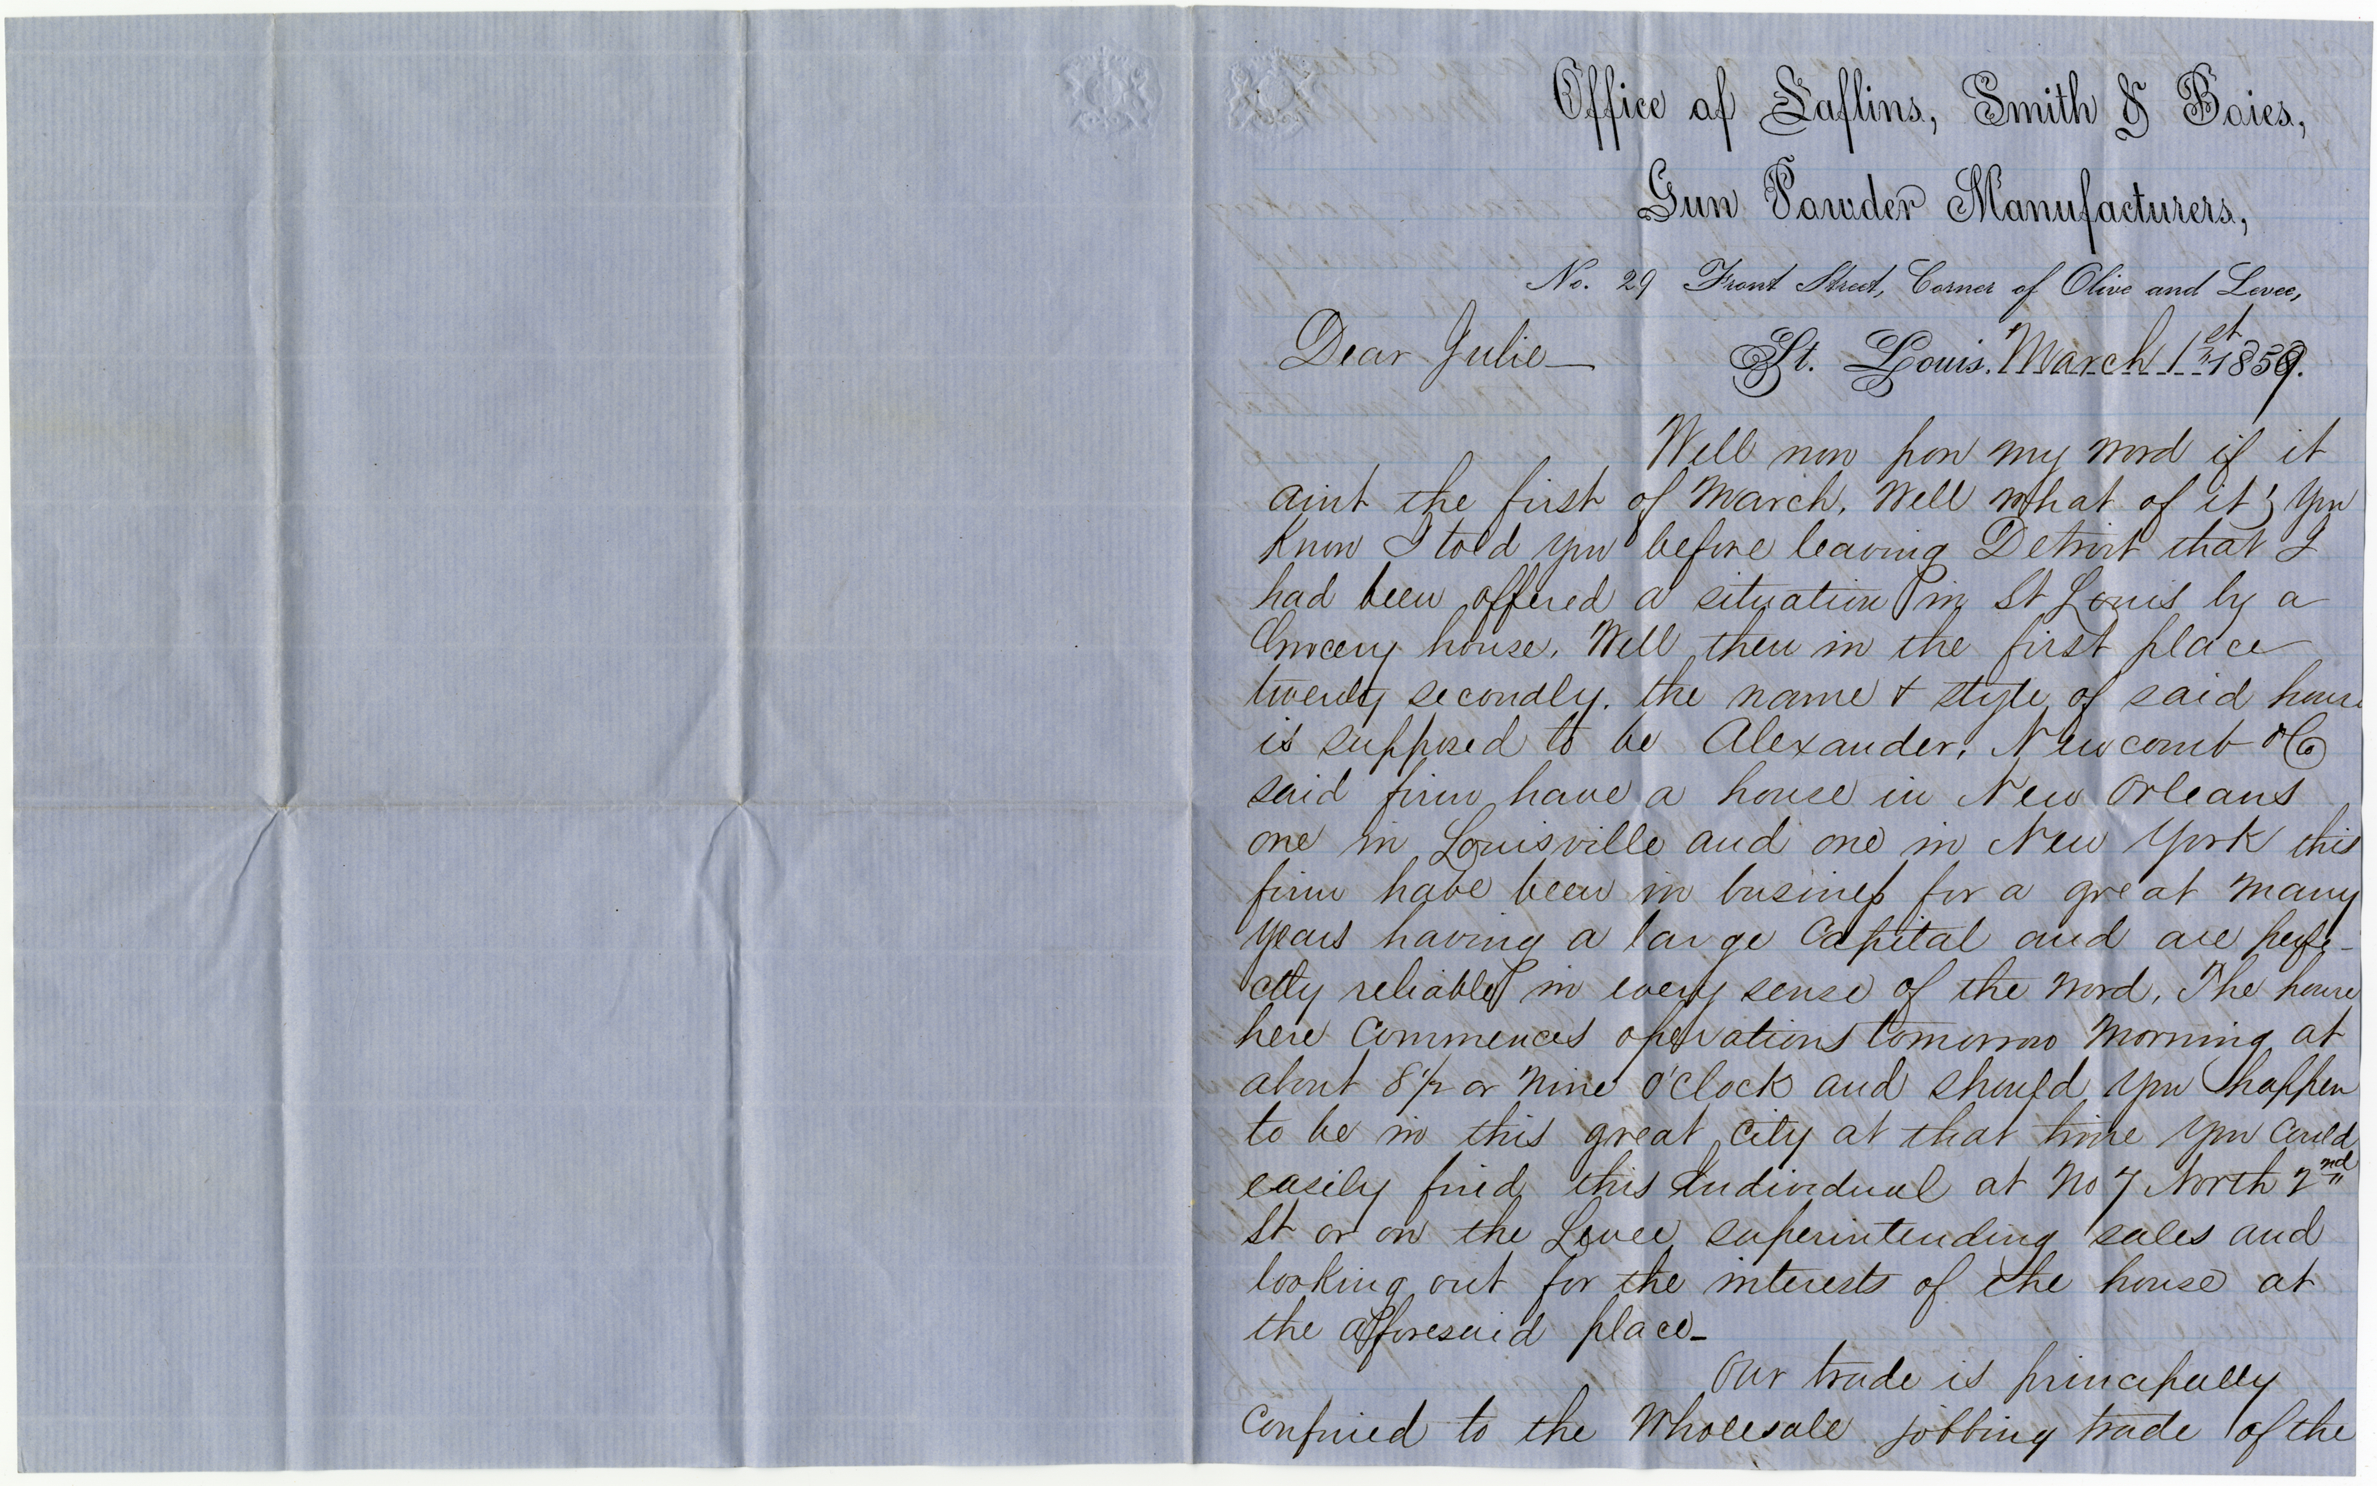 Office of Laflins, Smith & Boies,
Gun Powder Manufacturers,
No. 29 Front Street, Corner of Olive and Levee,
Dear Julie— St. Louis. March 1st 1859.
Well now pon my word if it
aint the first of March, Well what of it; you
know I told you before leaving Detroit that I
had been offered a situation in St Louis by a
Grocery house. Well then in the first place
twently secondly. the name & style of said house
is supposed to be Alexander, Newcomb & Co
said firm have a house in New Orleans
one in Louisville and one in New York this
firm have been in business for a great many
years having a large Capital and are perfe-
ctly reliable in every sense of the word. The house
here Commences operations tomorrow morning at
about 8 1/2 or nine o'clock and should you happen
to be in this great City at that time you could
easily find this Individual at No 7 North 2nd
St or on the Levee superintending sales and
looking out for the interests of the house at
the afforesaid place_
Our trade is principally
Confined to the Wholesale jobbing trade of the